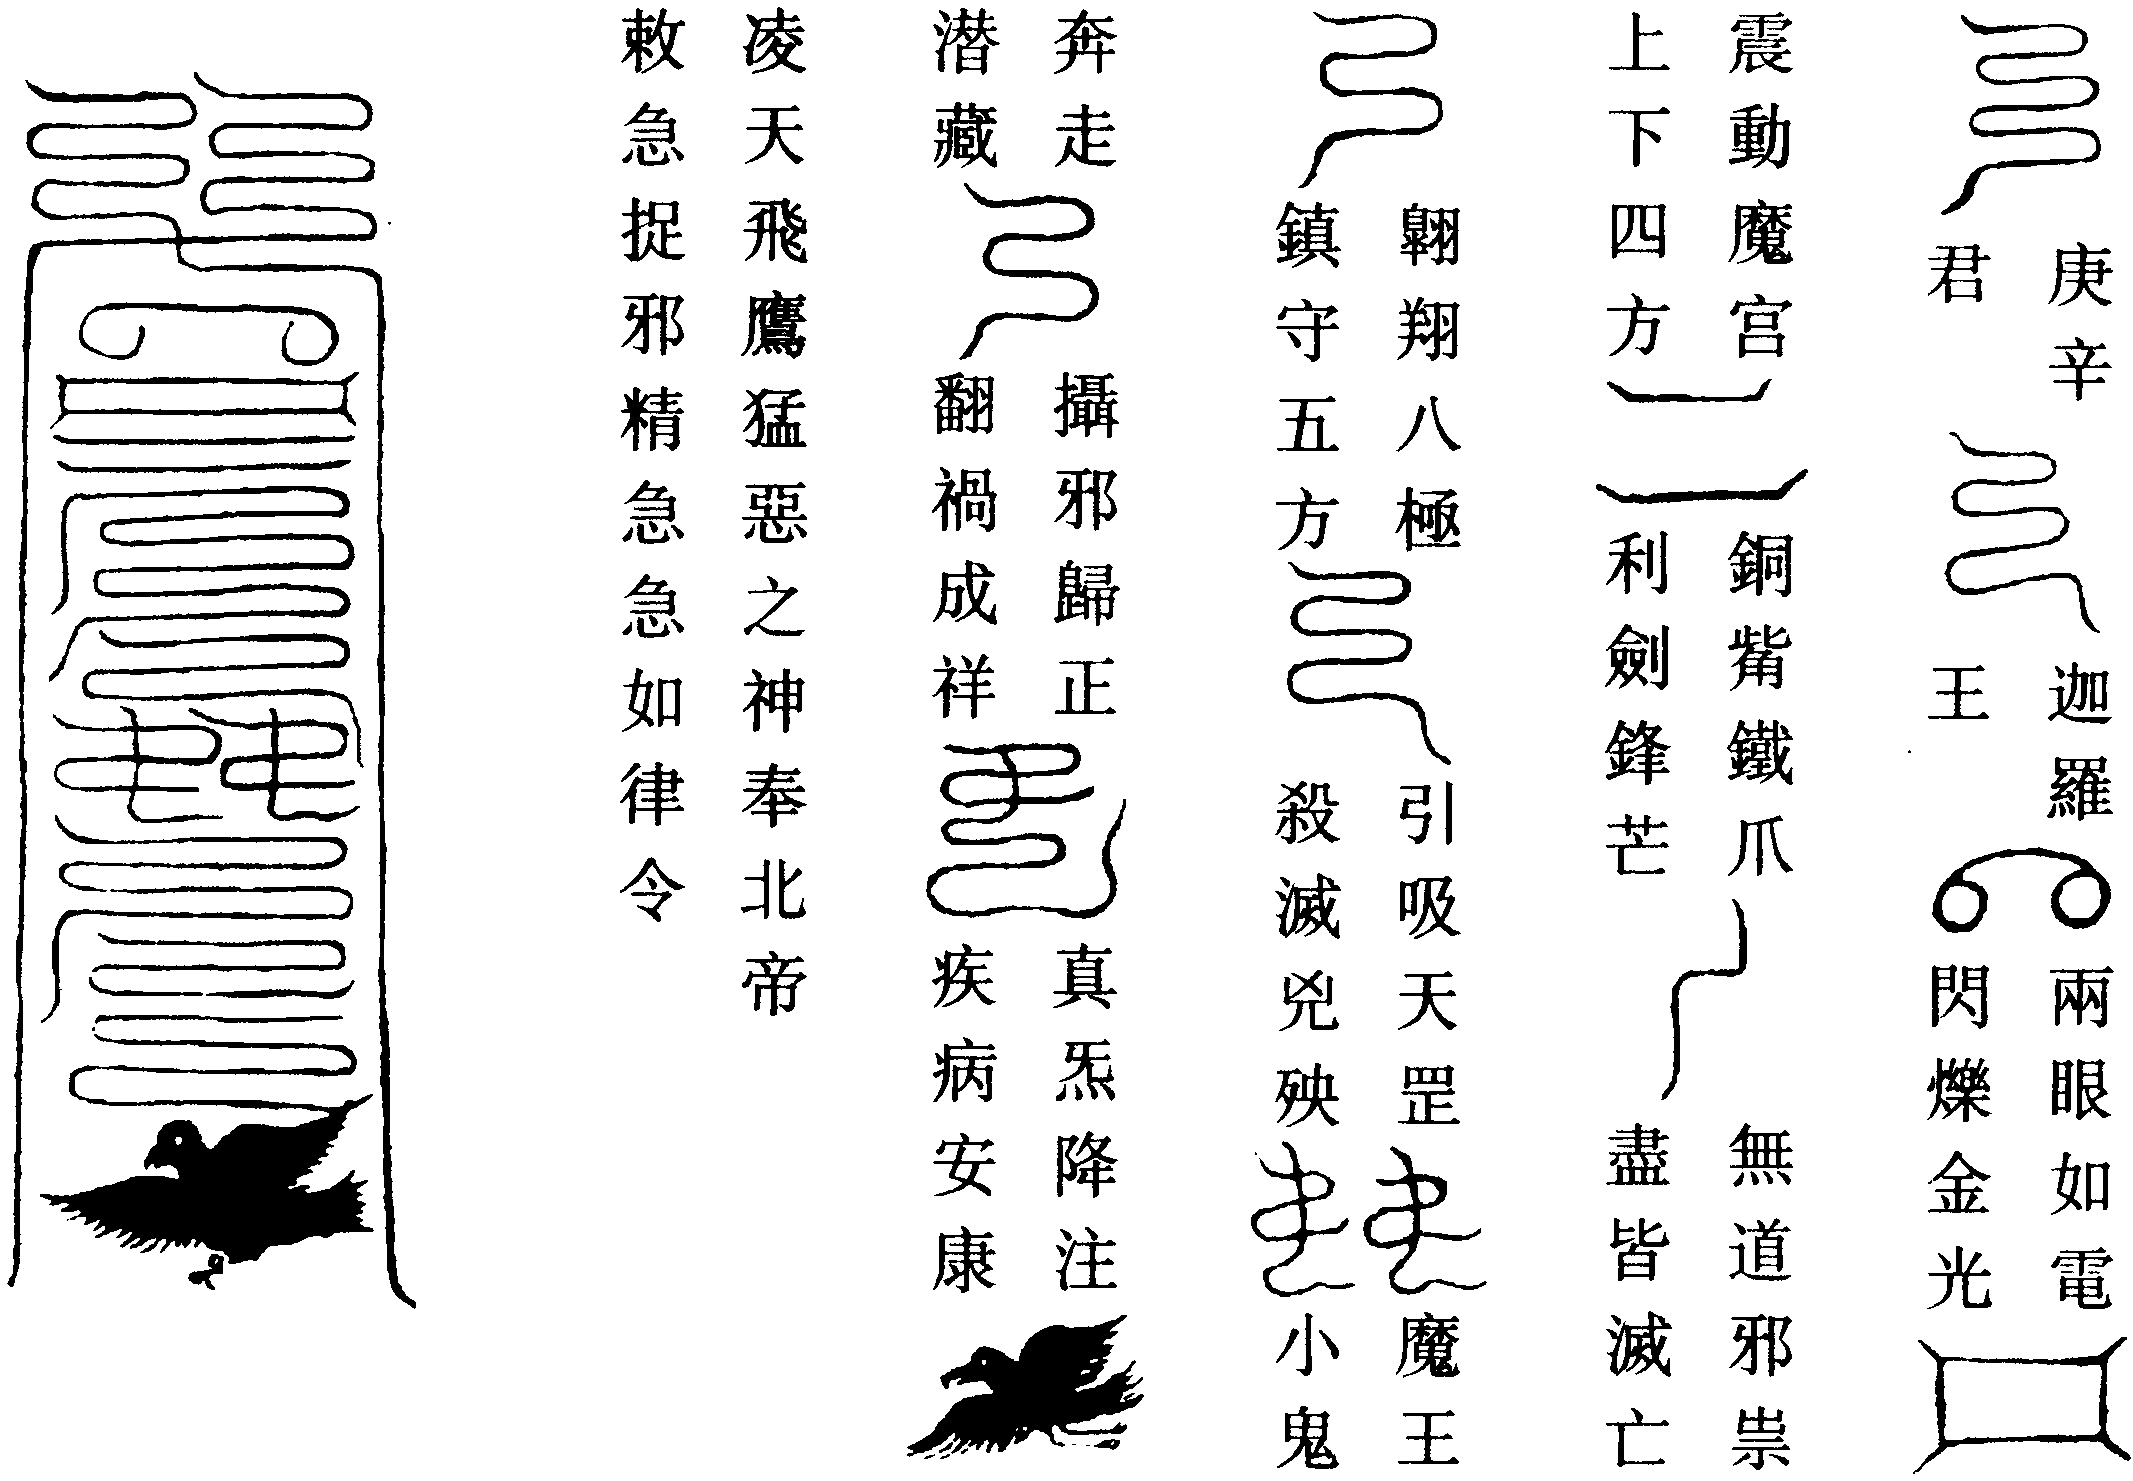 庚辛
君
迦羅
王
兩眼如電
閃爍金光
震動魔宫
上下四方
銅觜鐵爪
利劍鋒芒
無道邪祟
盡皆滅亡
翺翔八極
鎮守五方
引吸天罡
殺滅兇殃
魔王
小鬼
奔走
潜藏
攝邪歸正
翻禍成祥
真炁降注
疾病安康
凌天飛鷹猛惡之神奉北帝
敕急捉邪精急急如律令